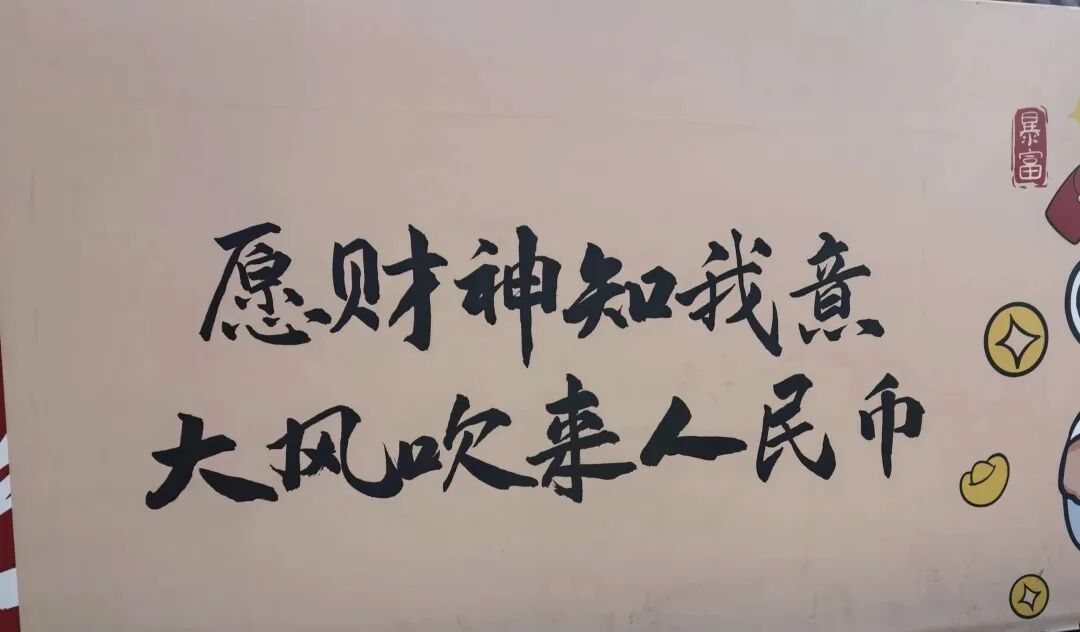 愿财神知我意
大风吹来人民币
暴富